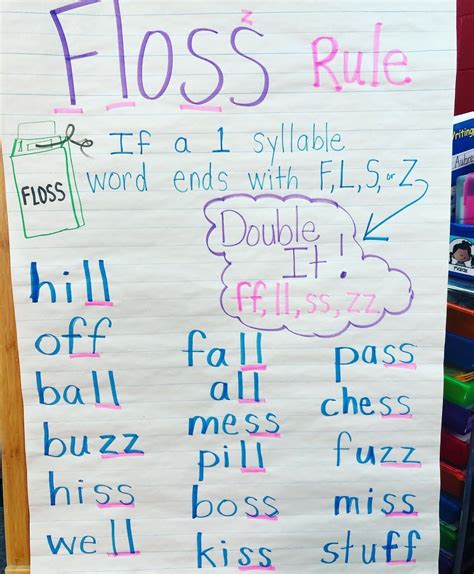 z
Floss Rule
If a 1 syllable
word ends with F, L, S, or Z
FLOSS
Double
It!
ff, ll, ss, zz
hill
off
ball
buzz
hiss
well
fall
all
mess
pill
boss
kiss
pass
chess
fuzz
miss
stuff